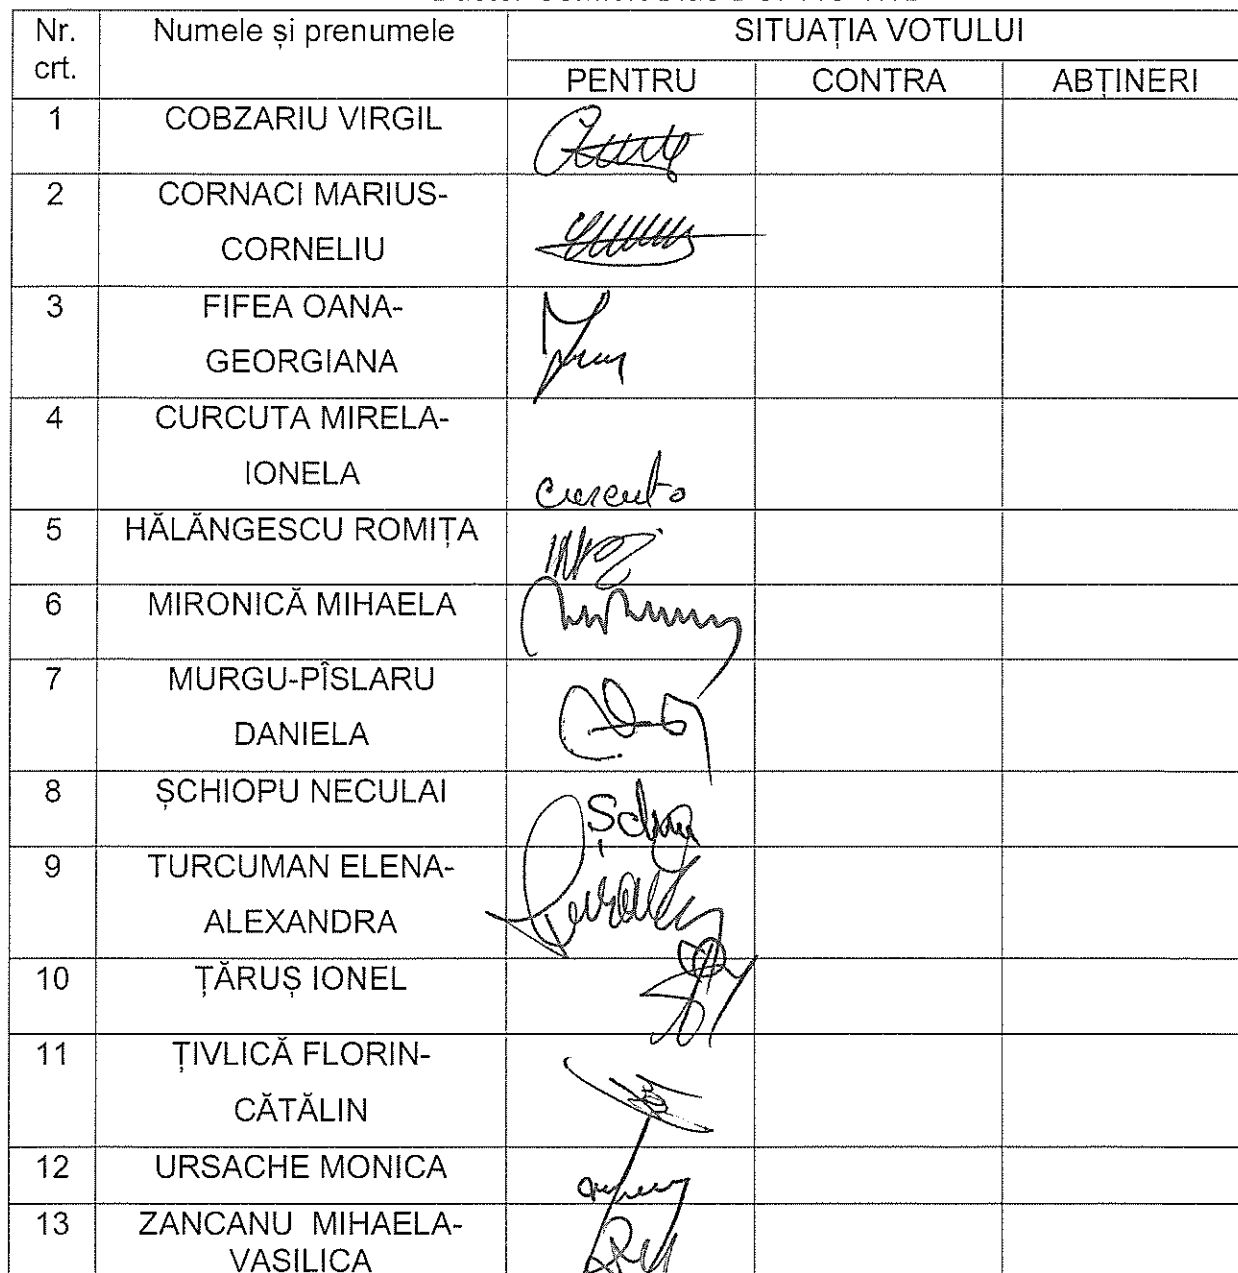 Nr. crt. Numele și prenumele SITUAȚIA VOTULUI
PENTRU CONTRA ABȚINERI
1 COBZARIU VIRGIL
2 CORNACI MARIUS-
CORNELIU
3 FIFEA OANA-
GEORGIANA
4 CURCUTA MIRELA-
IONELA
curcuta
5 HĂLĂNGESCU ROMIȚA
6 MIRONICĂ MIHAELA
7 MURGU-PÎSLARU
DANIELA
8 ȘCHIOPU NECULAI
9 TURCUMAN ELENA-
ALEXANDRA
10 ȚĂRUȘ IONEL
11 ȚIVLICĂ FLORIN-
CĂTĂLIN
12 URSACHE MONICA
13 ZANCANU MIHAELA-
VASILICA